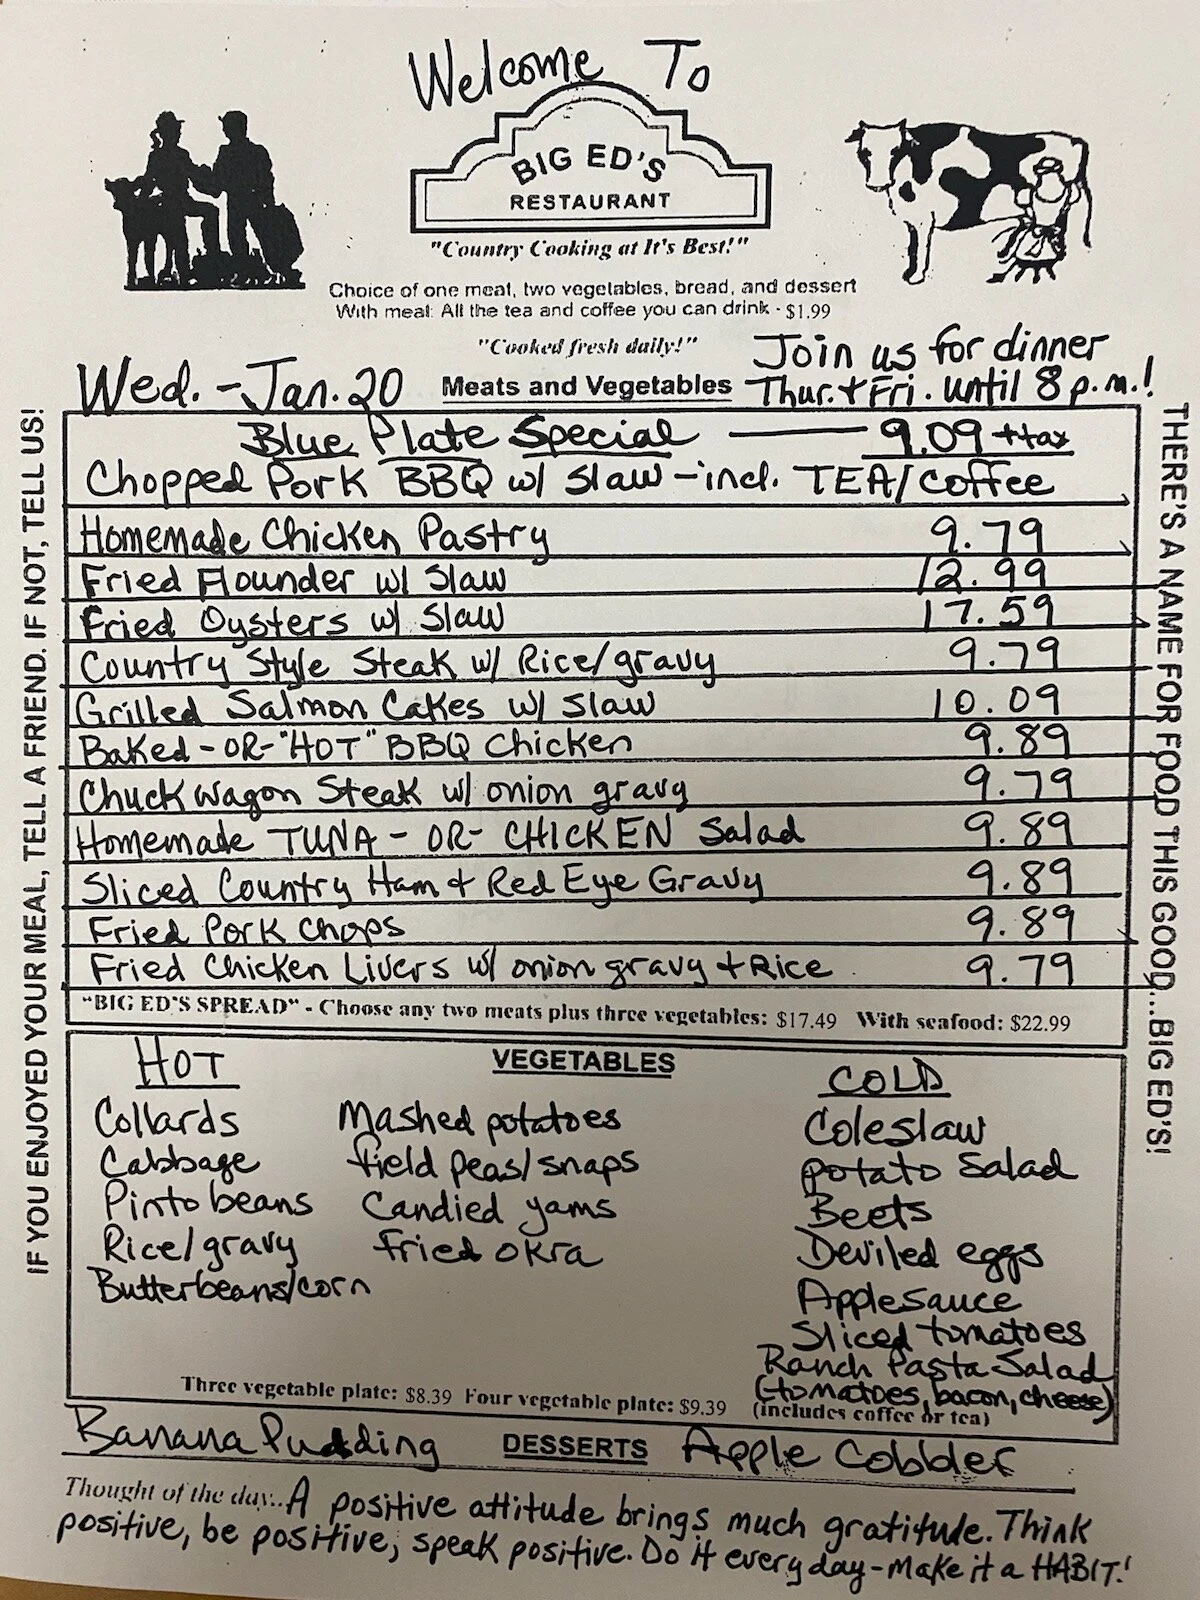 Welcome To
BIG ED'S
RESTAURANT
"Country Cooking at It's Best!"
Choice of one meat, two vegetables, bread, and dessert
With meal: All the tea and coffee you can drink - $1.99
"Cooked fresh daily!"
Join us for dinner
Thur. + Fri. until 8 p.m.!
Wed. - Jan. 20
Meats and Vegetables
Blue Plate Special — 9.09 + tax
Chopped Pork BBQ w/ Slaw - incl. TEA/Coffee
Homemade Chicken Pastry 9.79
Fried Flounder w/ Slaw 12.99
Fried Oysters w/ Slaw 17.59
Country Style Steak w/ Rice/gravy 9.79
Grilled Salmon Cakes w/ Slaw 10.09
Baked - OR - "HOT" BBQ Chicken 9.89
Chuck wagon Steak w/ onion gravy 9.79
Homemade TUNA - OR - CHICKEN Salad 9.89
Sliced Country Ham + Red Eye Gravy 9.89
Fried Pork Chops 9.89
Fried Chicken Livers w/ onion gravy + Rice 9.79
"BIG ED'S SPREAD" - Choose any two meats plus three vegetables: $17.49 With seafood: $22.99
VEGETABLES
HOT
Collards
Cabbage
Pinto beans
Rice/gravy
Butterbeans/corn
Mashed potatoes
field peas/snaps
Candied yams
fried okra
COLD
Coleslaw
potato Salad
Beets
Deviled eggs
Applesauce
Sliced tomatoes
Ranch Pasta Salad
(tomatoes, bacon, cheese)
Three vegetable plate: $8.39 Four vegetable plate: $9.39 (includes coffee or tea)
Banana Pudding DESSERTS Apple Cobbler
Thought of the day... A positive attitude brings much gratitude. Think
positive, be positive, speak positive. Do it every day - make it a HABIT!
IF YOU ENJOYED YOUR MEAL, TELL A FRIEND. IF NOT, TELL US!
THERE'S A NAME FOR FOOD THIS GOOD...BIG ED'S!